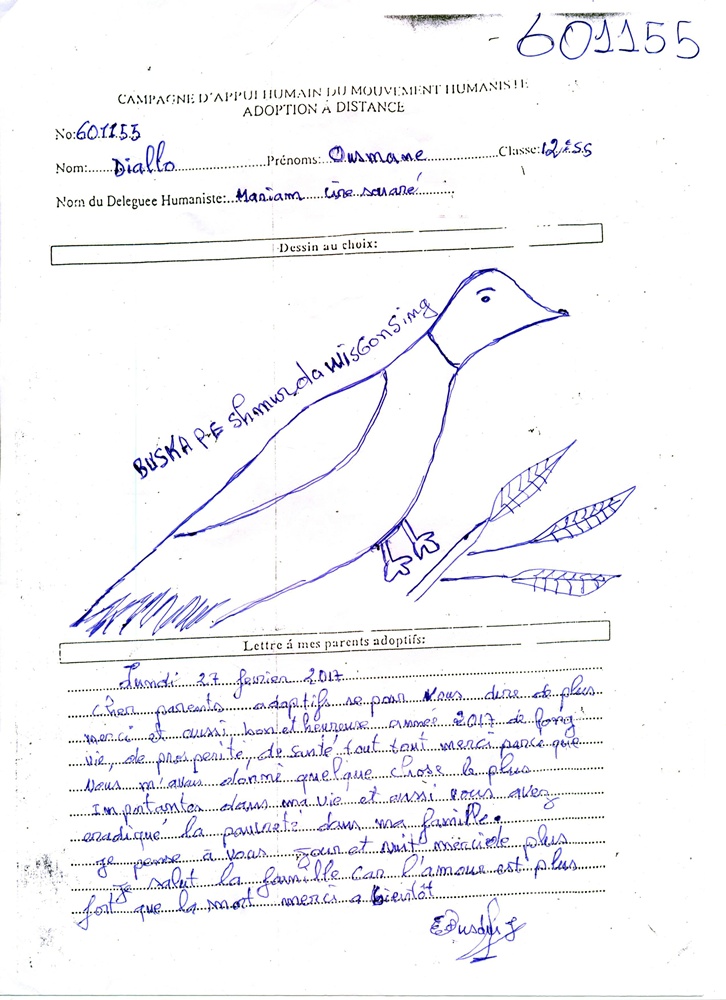 - 601155
CAMPAGNE D'APPUI HUMAIN DU MOUVEMENT HUMANISTE
ADOPTION A DISTANCE
No:601155
Nom:......Diallo......Prénoms:..Ousmane......Classe:12è SS
Nom du Deleguee Humaniste:..Mariam Cire souaré......
Dessin au choix:
BUSKA PE shmurda WisGonSing
Lettre á mes parents adoptifs:
Lundi 27 fevrier 2017
Cher parents adaptifs se pour vous dire de plus
merci et aussi bon et heureuse année 2017 de long
vie, de prosperité, de santé tout tout merci parce que
vous m'avais donné quelque chose le plus
Importantes dans ma vie et aussi vous avez
eradiqué la pauvreté dans ma famille.
je pense à vous jour et nuit merci de plus
je salut la famille car l'amour est plus
fort que la mort merci a bientôt